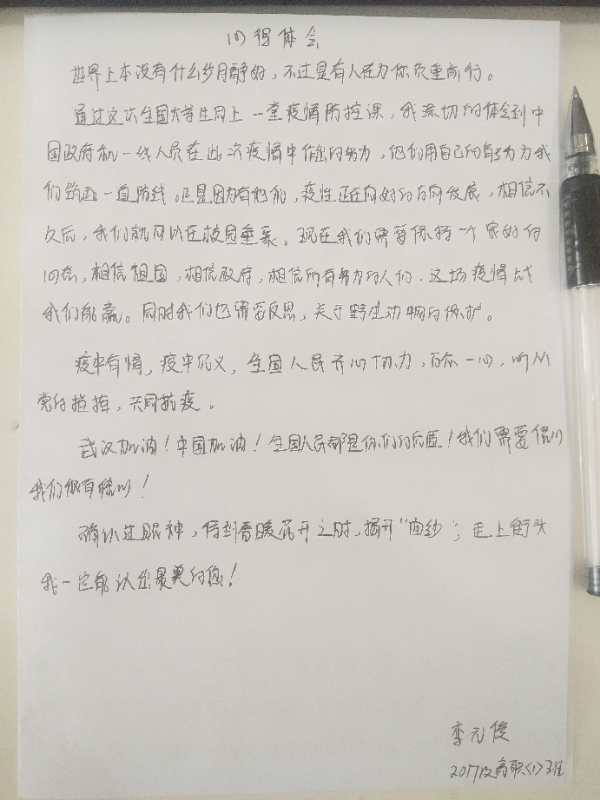 心得体会
世界上本没有什么岁月静好，不过是有人在为你负重前行。
通过这次全国大学生同上一堂疫情防控课，我深切的体会到中
国政府和一线人员在此次疫情中作出的努力，他们用自己的努力为我
们筑起一道防线。正是因为有他们，疫性正在向好的方向发展，相信不
久后，我们就可以在校园重聚。现在我们需要保持一个良好的
心态，相信祖国，相信政府，相信所有努力的人们，这场疫情战
我们能赢。同时我们也需要反思，关于野生动物的保护。
疫中有情，疫中有义，全国人民齐心协力，万众一心，听从
党的指挥，共同抗疫。
武汉加油！中国加油！全国人民都是你们的后盾！我们需要信心
我们很有信心！
确认过眼神，待到春暖花开之时，揭开“面纱”；走上街头
我一定能认出最美的您！
李元俊
2017级高职<1>班